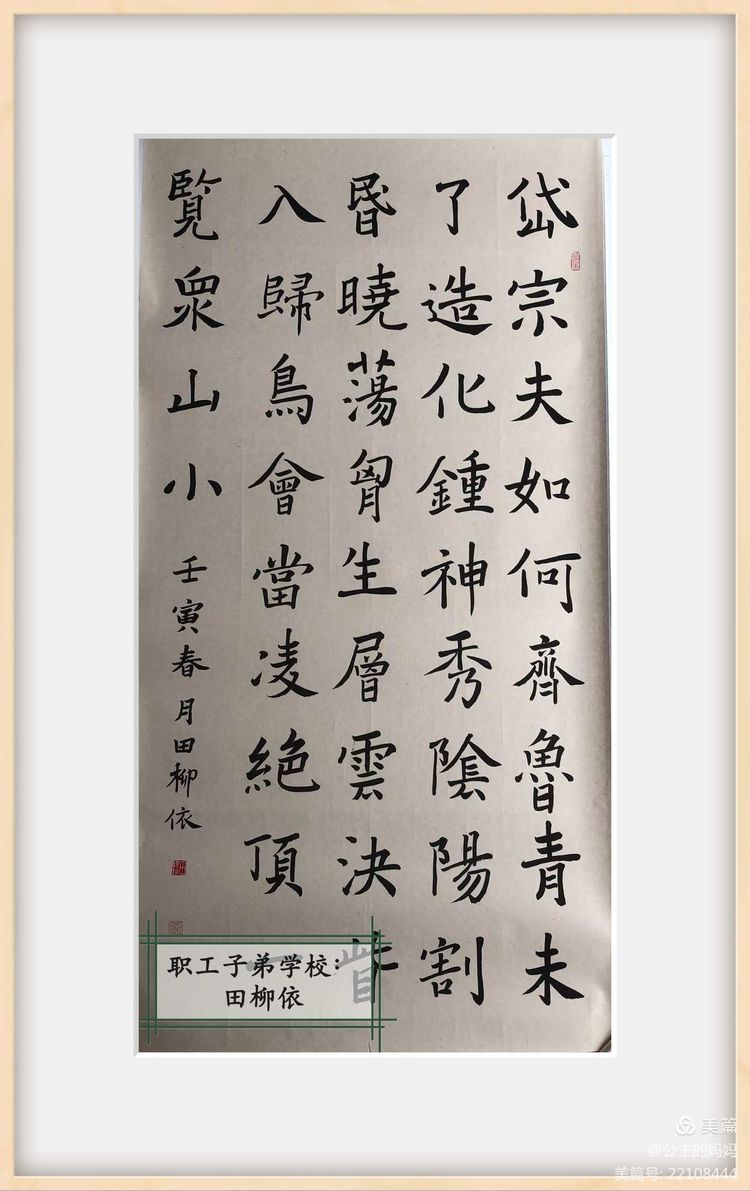 岱宗夫如何齊魯青未
了造化鍾神秀陰陽割
昬曉蕩胷生層雲決眥
入歸鳥會當凌絕頂一
覽衆山小
壬寅春月田柳依
职工子弟学校：
田柳依
美篇
@公主的妈妈
美篇号: 22108444